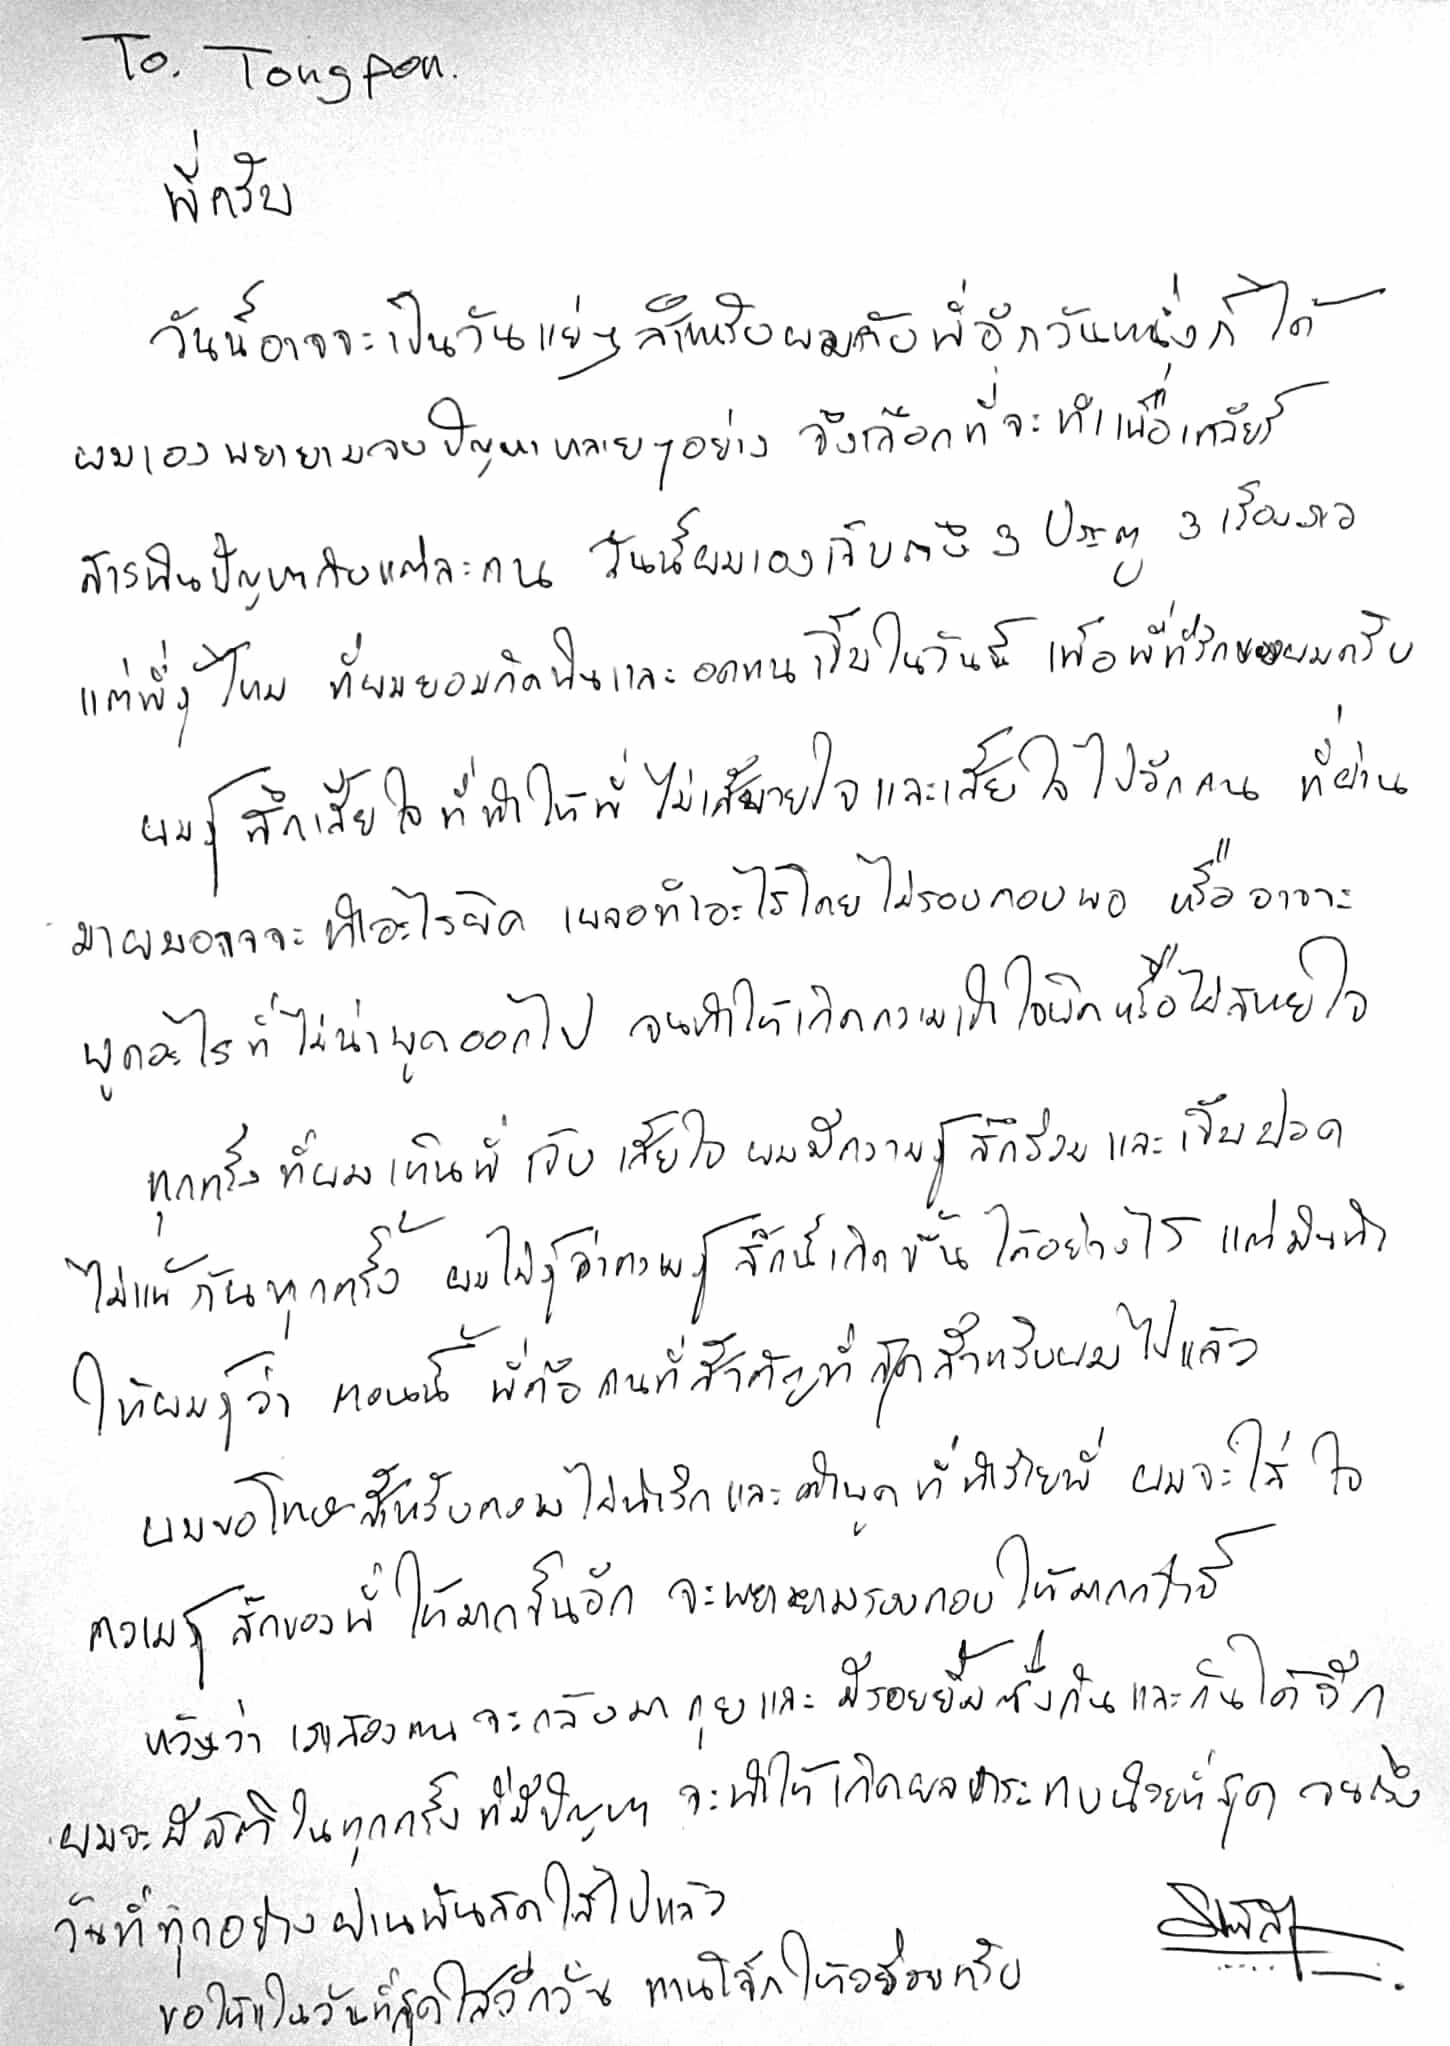 To. Tongpon.
พี่ครับ
วันนี้อาจจะเป็นวันแย่ๆ สำหรับผมกับพี่อีกวันหนึ่งก็ได้
ผมเองพยายามจบปัญหาหลายๆอย่าง จึงเลือกที่จะทำเพื่อเคลียร์
สารพันปัญหากับแต่ละคน วันนี้ผมเองเจ็บตัว 3 ประตู 3 เรื่อง
แต่พี่รู้ไหม ที่ผมยอมคิดฟันและอดทนเจ็บในวันนี้ เพื่อพี่ที่รักของผมครับ
ผมรู้สึกเสียใจที่ทำให้พี่ไม่สบายใจและเสียใจไปอีกคน ที่ผ่าน
มาผมอาจจะทำอะไรผิด เผลอทำอะไรโดยไม่รอบคอบพอ หรืออาจจะ
พูดอะไรที่ไม่น่าพูดออกไป จนทำให้เกิดความเข้าใจผิดหรือไม่สบายใจ
ทุกครั้งที่ผมเห็นพี่เจ็บ เสียใจ ผมมีความรู้สึกร่วมและเจ็บปวด
ไม่แพ้กันทุกครั้ง ผมไม่รู้ว่าความรู้สึกนี้เกิดขึ้นได้อย่างไร แต่มันทำ
ให้ผมรู้ว่า ตอนนี้ พี่คือคนที่สำคัญที่สุดสำหรับผมไปแล้ว
ผมขอโทษสำหรับความไม่น่ารักและคำพูดที่ทำร้ายพี่ ผมจะใส่ใจ
ความรู้สึกของพี่ให้มากขึ้นอีก จะพยายามรอบคอบให้มากกว่านี้
หวังว่า เราสองคนจะกลับมาคุยและมีรอยยิ้มซึ่งกันและกันได้อีก
ผมจะมีสติในทุกครั้งที่มีปัญหา จะทำให้เกิดผลกระทบน้อยที่สุด จนถึง
วันที่ทุกอย่างผ่านพ้นสดใสไปแล้ว
ขอให้เป็นวันที่สดใสอีกวัน ทานโจ๊กให้อร่อยครับ